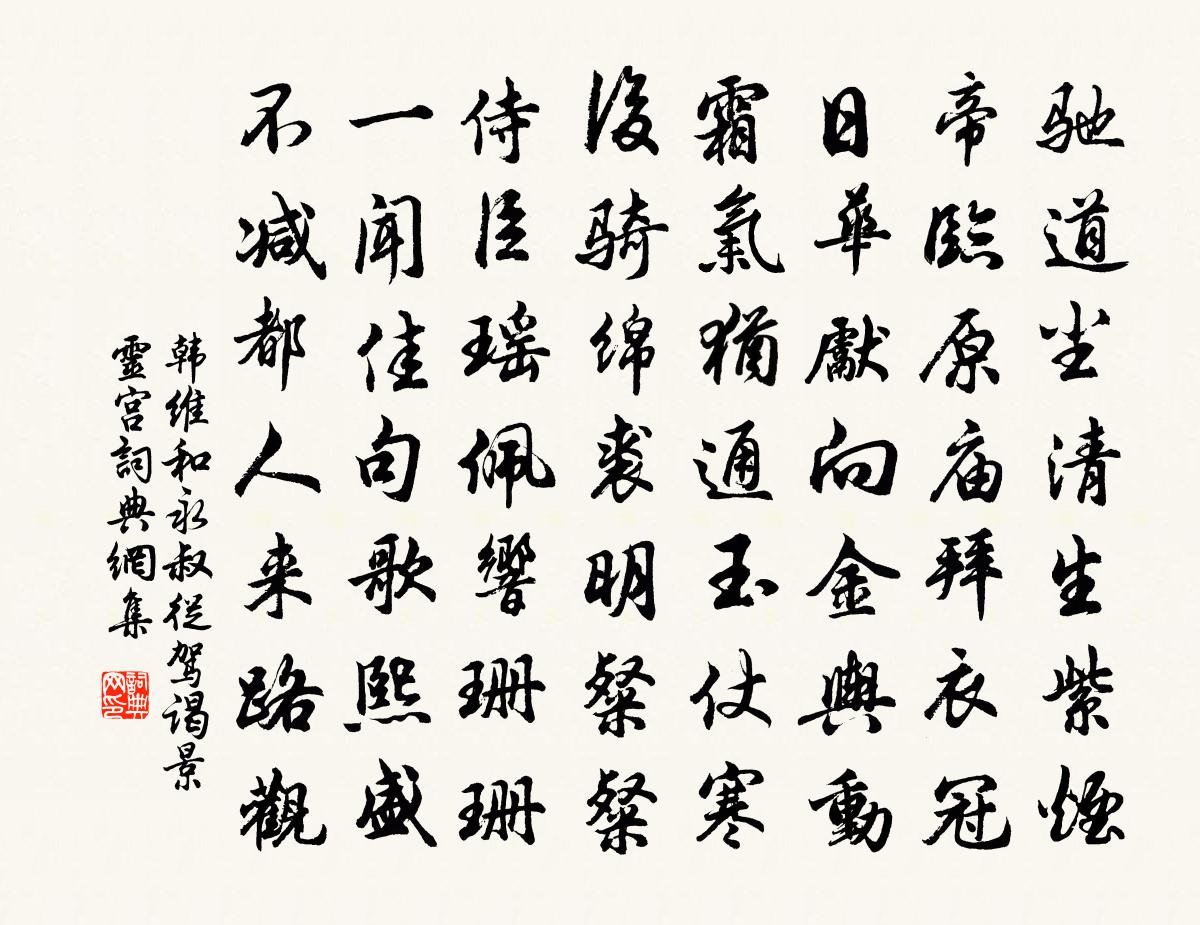 驰道尘清生紫烟
帝临原庙拜衣冠
日华献向金舆动
霜气犹通玉仗寒
後骑绵裘明粲粲
侍臣瑶佩响珊珊
一闻佳句歌熙盛
不减都人来路观
韩维和永叔従驾谒景
灵宫词典网集
词典网印